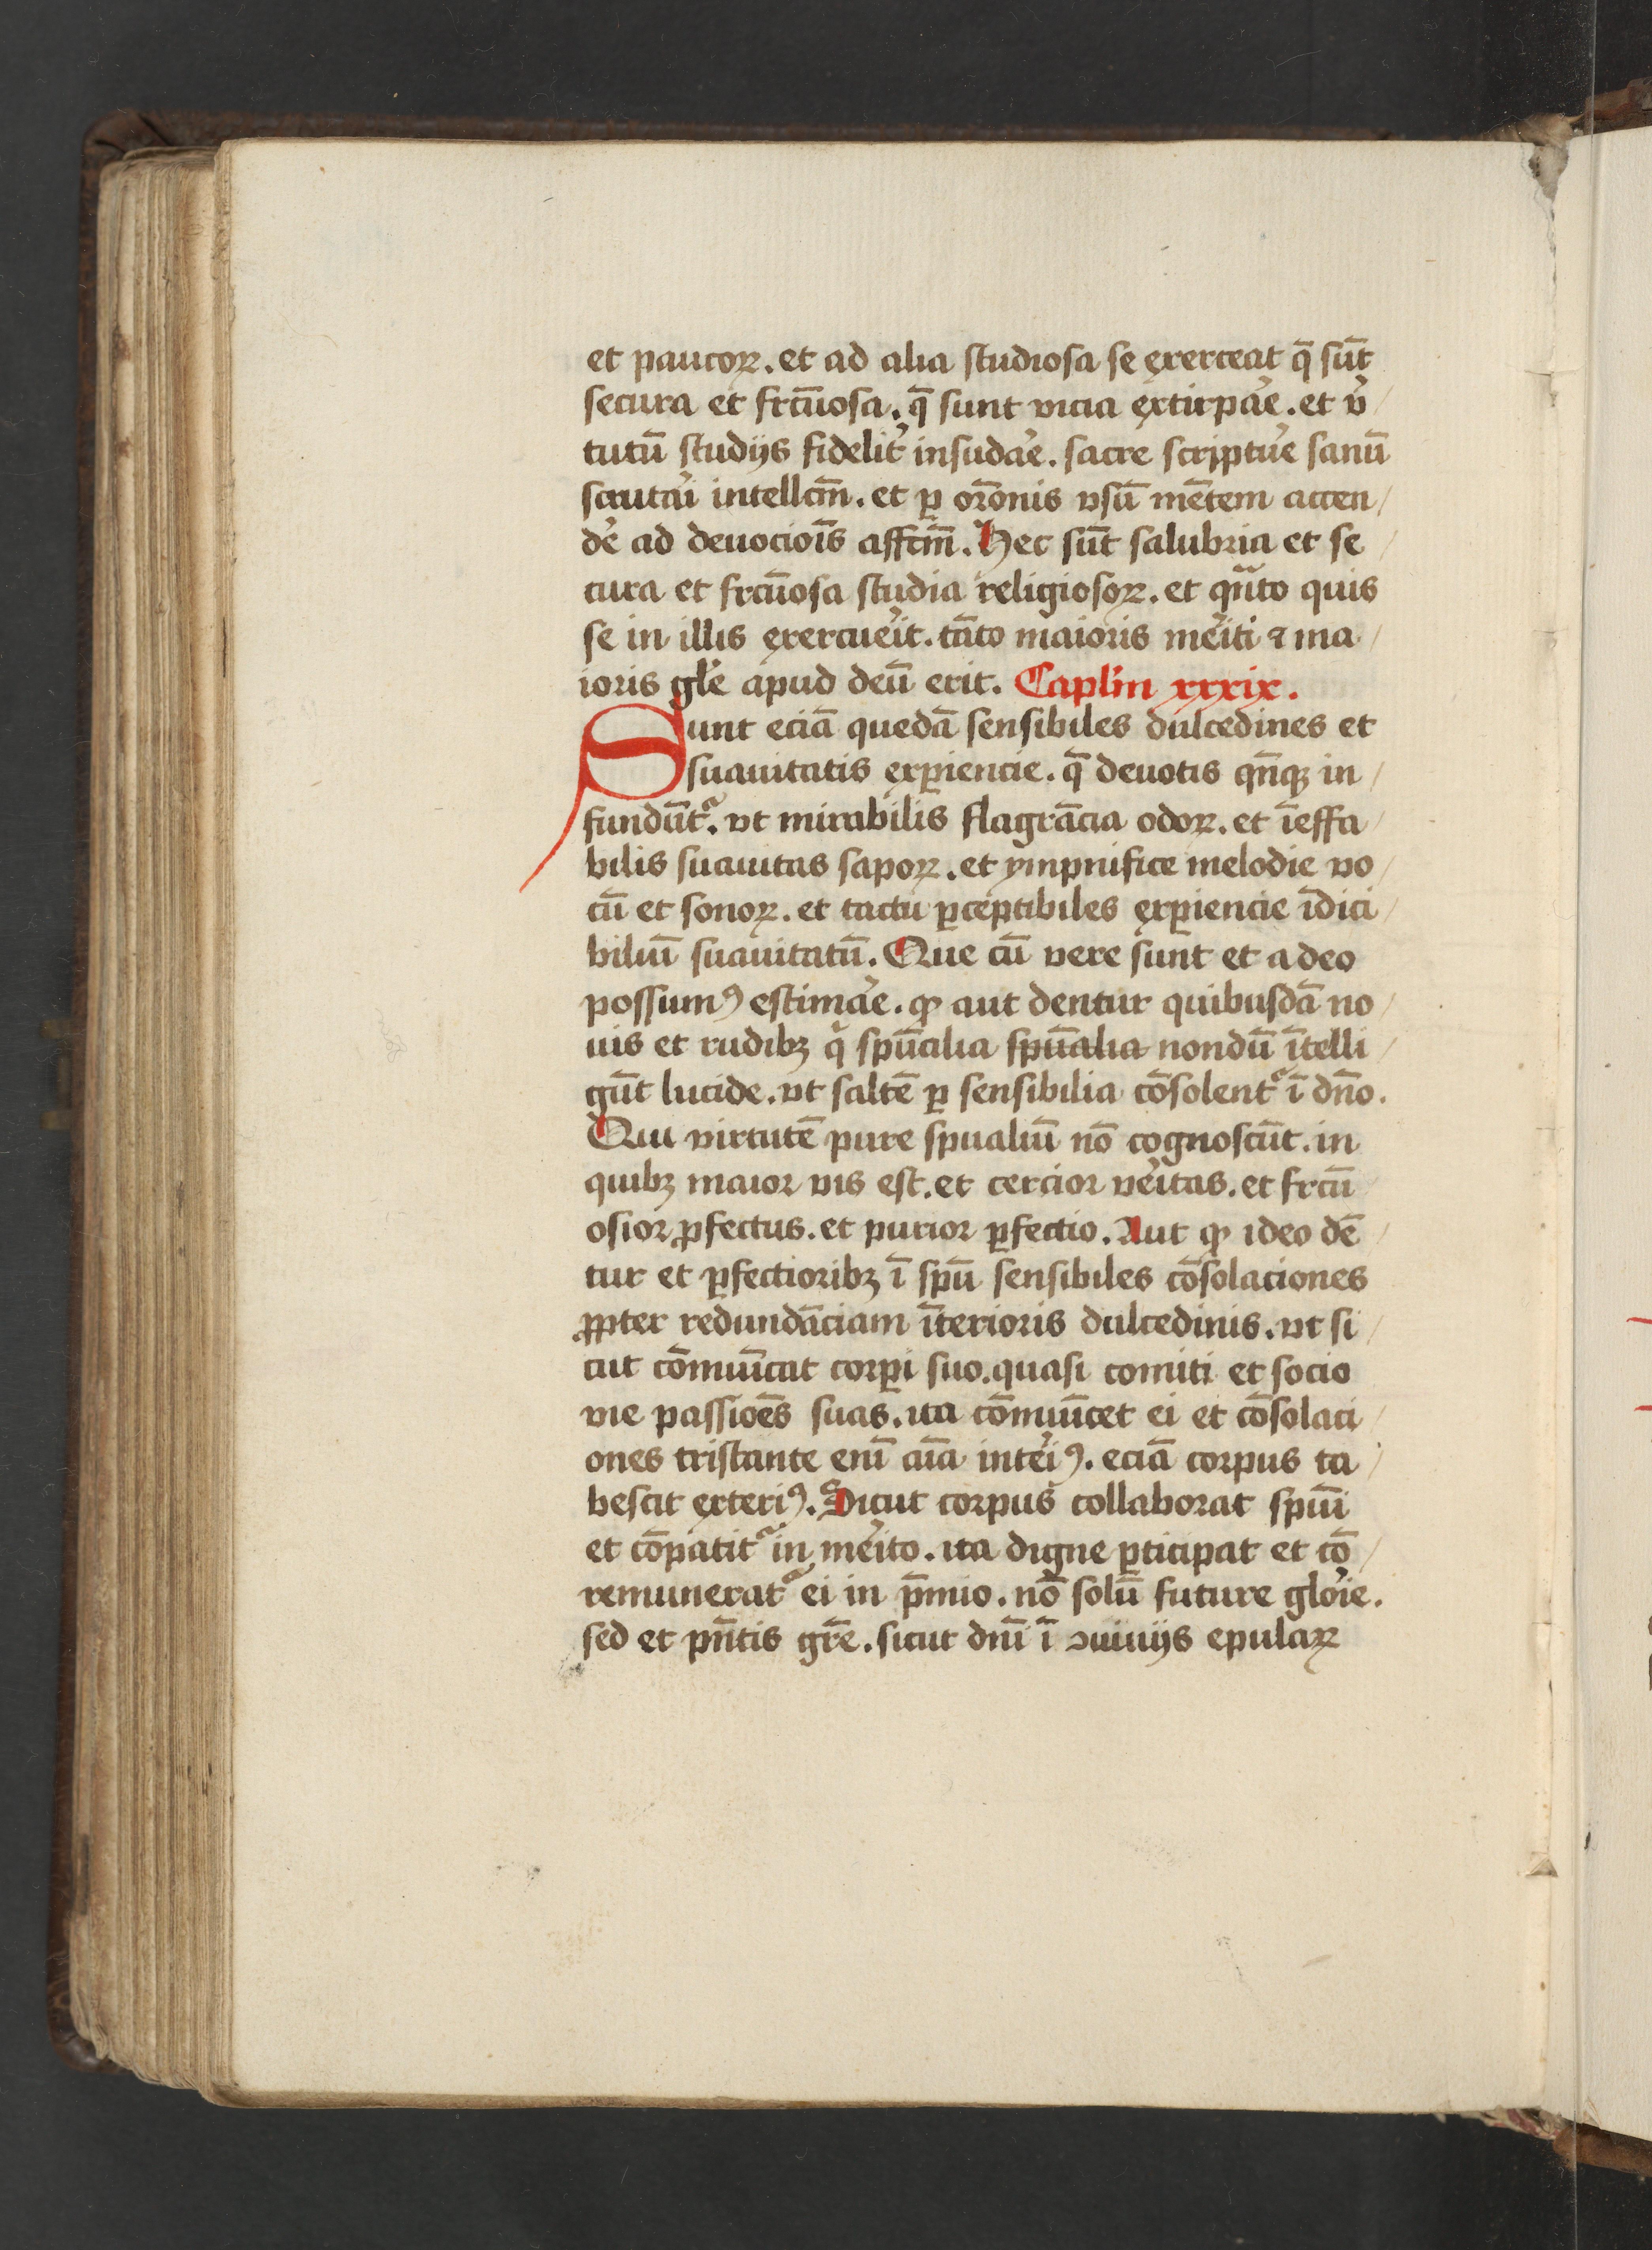 et paucoꝝ. et ad alia studiosa se exerceat q̄ sūt
secura et frc̄uosa. q̄ sunt vicia extirpar̄e. et v̓
tutū studijs fidelit̓ insudar̄e. sacre scriptur̄e sanū
scrutari intellcm̄. et ꝑ or̄onis vsū mētem accen/
der̄e ad deuocioīs affcm̄. Hec sūt salubria et se
cura et frc̄uosa studia religiosoꝝ. et qᷓnto quis
se in illis exercuer̄it. tāto maioris mer̄iti ⁊ ma/
ioris gl̄e apud deū erit. Capl̄m xxxix.
Sunt eciā quedā sensibiles dulcedines et
suauitatis exꝑiencie. q̄ deuotis qn̄qꝫ in/
fundūt᷑. vt mirabilis flagrācia odoꝝ. et īeffa/
bilis suauitas sapoꝝ. et ympnifice melodie vo/
cū et sonoꝝ. et tactu ꝑceptibiles exꝑiencie īdici/
biliū suauitatū. Que cū vere sunt et a deo
possumꝰ estimar̄e. ꝙ aut dentur quibusdā no/
uis et rudibꝫ qͥ spūalia spūalia nondū ītelli/
gūt lucide. vt saltē ꝑ sensibilia cōsolent᷑ ī dn̄o.
Qui virtutē pure spualiū nō cognoscūt. in
quibꝫ maior vis est. et cercior ver̄itas. et frc̄u
osior ꝓfectus. et purior ꝑfectio. Aut ꝙ ideo dē/
tur et ꝑfectioribꝫ ī spū sensibiles cōsolaciones
ꝓpter redundāciam īterioris dulcedinis. vt si/
cut cōmūicat corꝑi suo. quasi comiti et socio
vie passioēs suas. ita cōmūicet ei et cōsolaci/
ones tristante enī aīa inter̄iꝰ. eciā corpus ta/
bescit exteriꝰ. Sicut corpus collaborat spūi
et cōpatit᷑ in mer̄ito. ita digne ꝑticipat et cō/
remunerat᷑ ei in p̄mio. nō solū future glor̄ie.
sed et pn̄tis gr̄e. sicut dnī ī ꝯuiuijs epulaꝝ